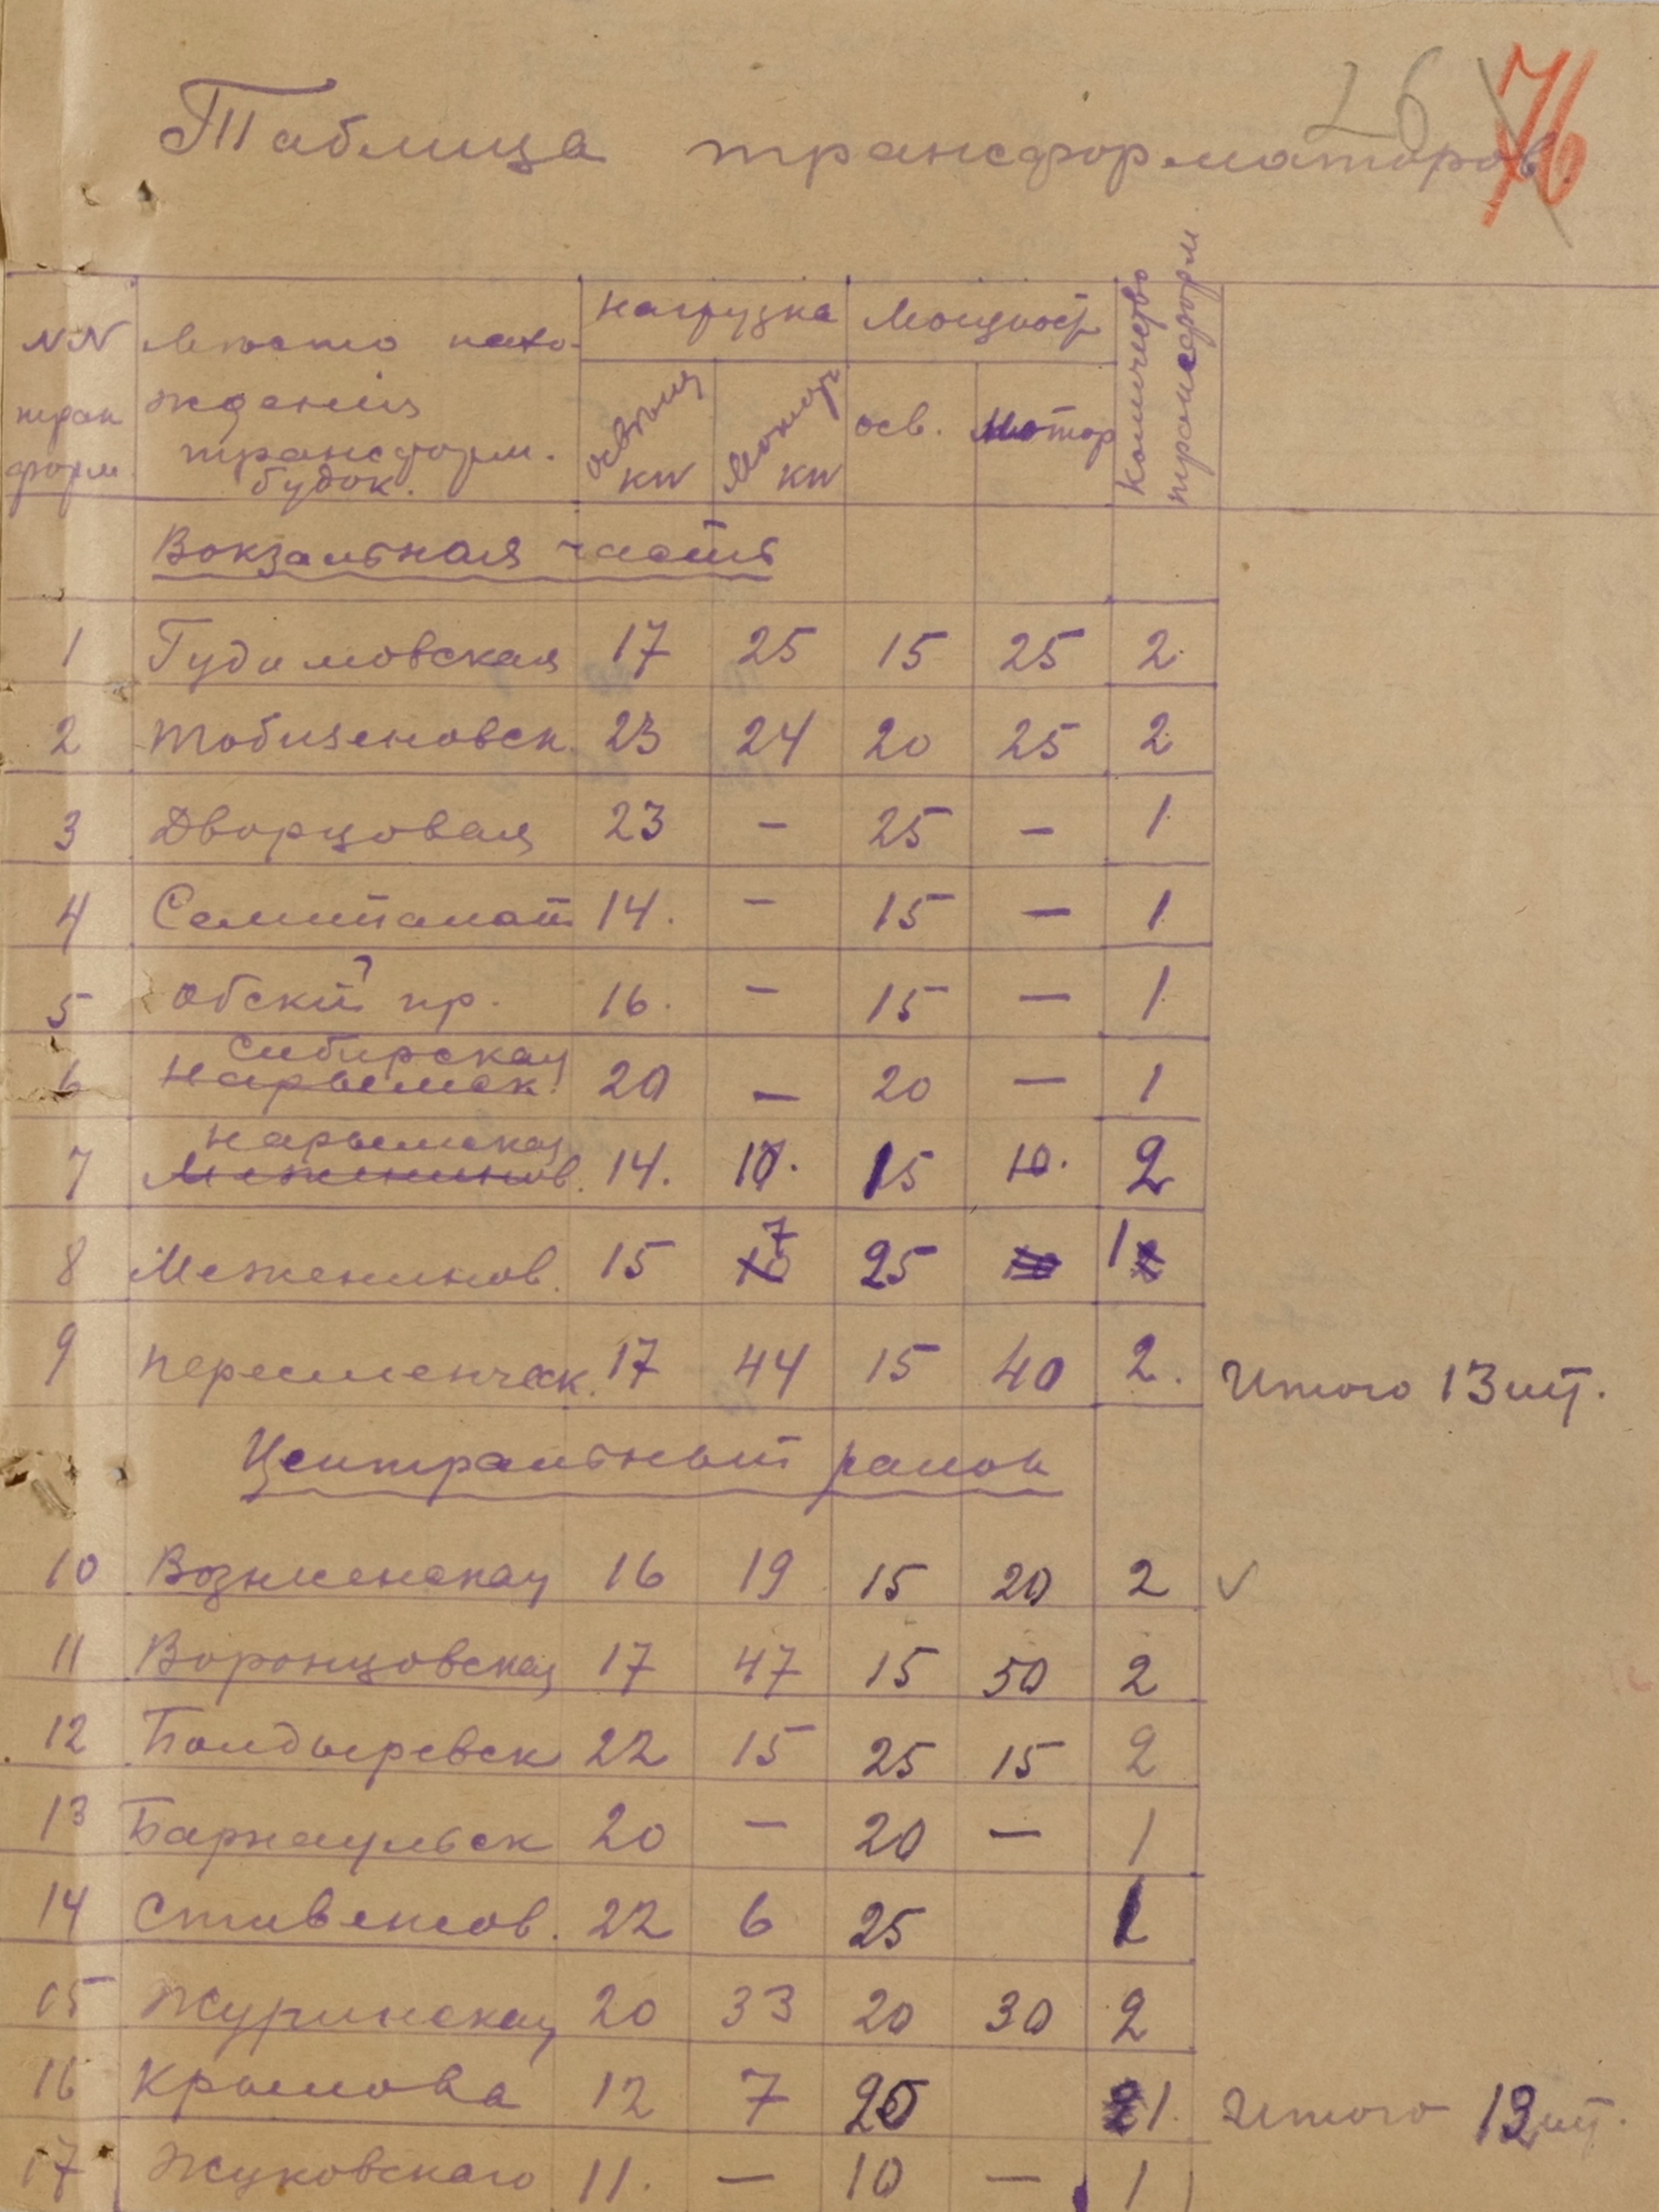 26 76
Таблица трансформаторов.
NN тран форм.
Место нахо-
ждения
трансформ.
будок.
Нагрузка
Мощност
Количество трансформ
осв. мотор
kw kw
Вокзальная часть
1 Гудимовская 17 25 15 25 2
2 Тобизеновск. 23 24 20 25 2
3 Дворцовая 23 - 25 - 1
4 Семипалат 14. - 15 - 1
5 Обский пр. 16. - 15 - 1
Сибирская
6 Нарымск. 20 - 20 - 1
Нарымская
7 Меженинов. 14. 10. 15 10. 2
7
8 Меженинов. 15 10 25 10 1
9 Переименческ. 17 44 15 40 2. Итого 13 шт.
Центральный район
10 Вознесенская 16 19 15 20 2 ✓
11 Воронцовская 17 47 15 50 2
12 Болдыревск 22 15 25 15 2
13 Барнаульск 20 - 20 - 1
14 Стивенсов. 22 6 25 1
15 Журинская 20 33 20 30 2
16 Крылова 12 7 20 1. Итого 12 шт.
17 Жуковскаго 11. - 10 - 1